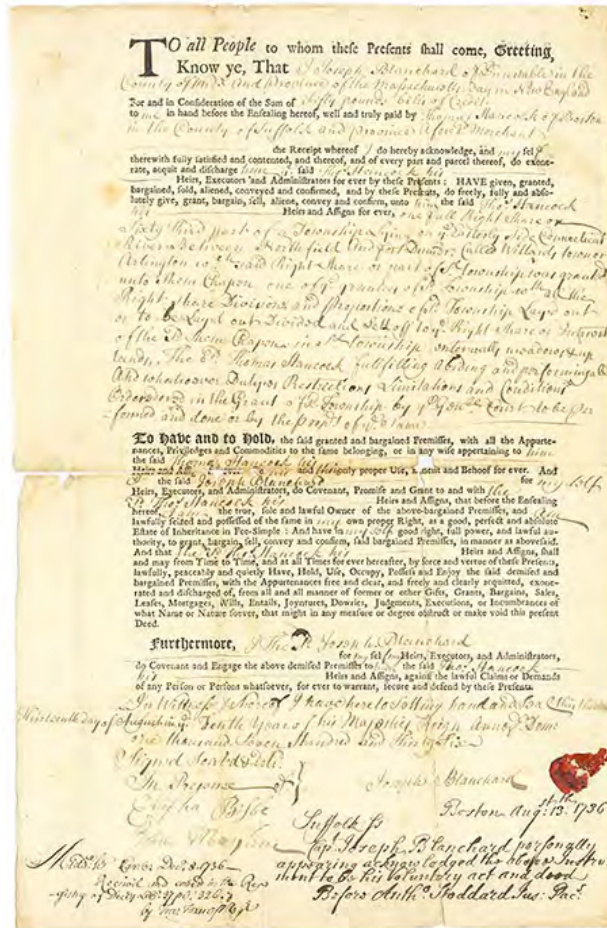 TO all People to whom these Presents shall come, Greeting,
Know ye, That I Joseph Blanchard of Dunstable in the
County of Middx And Province of the Massachusetts Bay in New England
For and in Consideration of the Sum of fifty pounds bills of Credit
to me in hand before the Ensealing hereof, well and truly paid by Thomas Hancock of Boston
in the County of Suffolk and province Afores.d Merchant
the Receipt whereof I do hereby acknowledge, and my self
therewith fully satisfied and contented, and thereof, and of every part and parcel thereof, do exone-
rate, acquit and discharge him ye said Tho.s Hancock his
Heirs, Executors and Administrators for ever by these Presents : HAVE given, granted,
bargained, sold, aliened, conveyed and confirmed, and by these Presents, do freely, fully and abso-
lutely give, grant, bargain, sell, aliene, convey and confirm, unto him the said Tho.s Hancock
his Heirs and Assigns for ever, one full Right Share or
Sixty Third part of a Township Lying on ye Easterly Side Connecticut
River Between Northfield And fort Dummer Called Willards town or
Arlington wch said Right Share or part of sd Township was granted
unto Them Chapon one of ye grantees of sd Township with all the
Right Share Divisions and Proportions of sd Township Layd out
or to be Layd out Divided and Sett off to ye Right Share or Interest
of the sd Them Chapon in sd Township Intervalls meadows & up
lands. The sd Thomas Hancock fulfilling Abiding and performing all
And whatsoever Dutys Restrictions Limitations and Conditions
Ordered in the Grant of sd Township by ye Court to be per
formed and done by the of ye Same
To Have and to Hold, the said granted and bargained Premisses, with all the Appurte-
nances, Priviledges and Commodities to the same belonging, or in any wise appertaining to him
the said Thomas Hancock his
Heirs and only proper Use, Benefit and Behoof for ever. And
I the said Joseph Blanchard for my self
Heirs, Executors, and Administrators, do Covenant, Promise and Grant to and with the
sd Tho.s Hancock his Heirs and Assigns, that before the Ensealing
hereof, the true, sole and lawful Owner of the above-bargained Premisses, and
lawfully seized and possessed of the same in my own proper Right, as a good, perfect and absolute
Estate of Inheritance in Fee-Simple : And have in my self good right, full power, and lawful au-
thority, to grant, bargain, sell, convey and confirm, said bargained Premisses, in manner as abovesaid.
And that the sd Tho.s Hancock his Heirs and Assigns, shall
and may from Time to Time, and at all Times for ever hereafter, by force and vertue of these Presents,
lawfully, peaceably and quietly Have, Hold, Use, Occupy, Possess and Enjoy the said demised and
bargained Premisses, with the Appurtenances free and clear, and freely and clearly acquitted, exone-
rated and discharged of, from all and all manner of former or other Gifts, Grants, Bargains, Sales,
Leases, Mortgages, Wills, Entails, Joyntures, Dowries, Judgments, Executions, or Incumbrances of
what Name or Nature soever, that might in any measure or degree obstruct or make void this present
Deed.
Furthermore, I The sd Joseph Blanchard
for my self my Heirs, Executors, and Administrators,
do Covenant and Engage the above demised Premisses to him the said Tho.s Hancock
his Heirs and Assigns, against the lawful Claims or Demands
of any Person or Persons whatsoever, for ever to warrant, secure and defend by these Presents.
In Witness whereof I have hereto Sett my hand and Seal this
thirteenth day of August in ye Tenth Year of his Majesties Reign Annoq Dom:
one thousand Seven Hundred and Thirty Six
Signed Sealed & deld
In Presence of
Joseph Blanchard
Boston Augst 13th 1736
Suffolk Ss
Capt. Joseph Blanchard personally
appearing acknowledged the above Instru
ment to be his Voluntary act and deed
Before Antho Stoddard Jus: Pac:
Middx Ss Dec.r 8. 1736
Received and entred in the Reg
istry of Deeds